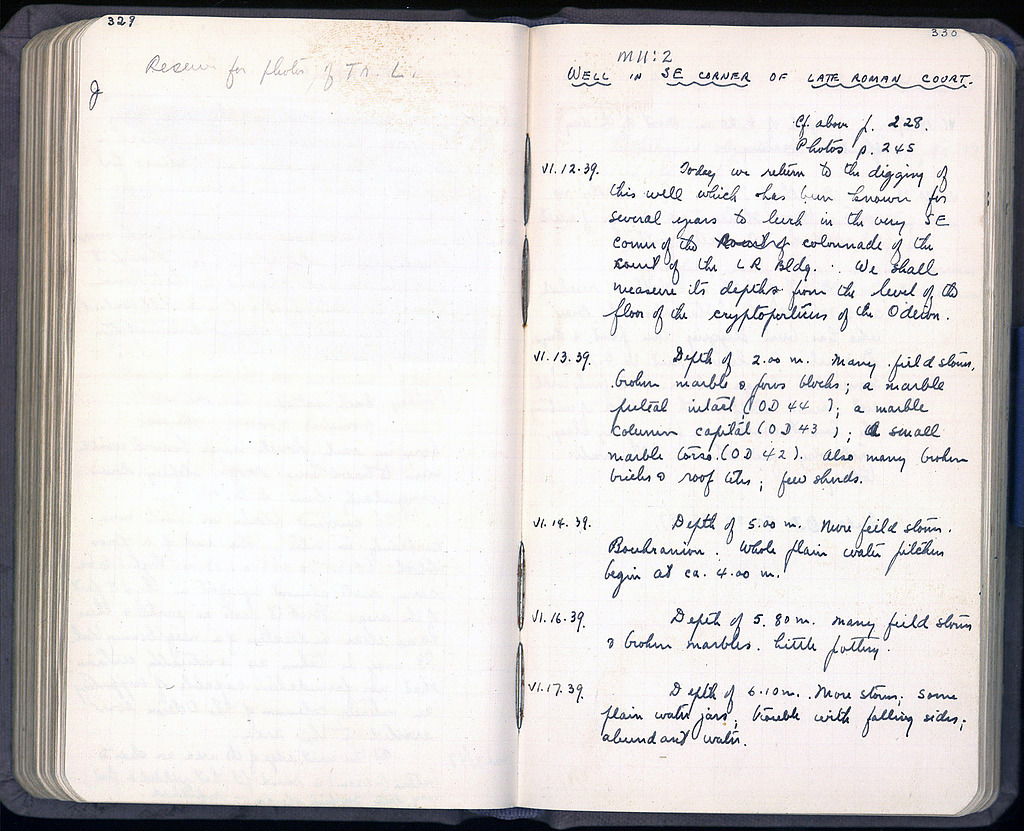 329
Reserve for photos of Tr. L.
J
330
M11:2
WELL IN SE CORNER OF LATE ROMAN COURT.
Cf. above p. 228.
Photos p. 245
VI.12.39. Today we return to the digging of
this well which has been known for
several years to lurk in the very SE
corner of the colonnade of the
court of the LR Bldg. We shall
measure its depths from the level of the
floor of the cryptoporticus of the Odeion.
VI.13.39. Depth of 2.00 m. Many field stones,
broken marble & poros blocks; a marble
puteal intact (OD 44 ); a marble
column capital (OD 43 ); a small
marble torso (OD 42). Also many broken
bricks & roof tiles; few sherds.
VI.14.39. Depth of 5.00 m. More feild stones.
Boukranion. Whole plain water pitchers
begin at ca. 4.00 m.
VI.16.39. Depth of 5.80 m. Many field stones
& broken marbles. Little pottery.
VI.17.39. Depth of 6.10 m. More stones; some
plain water jars; trouble with falling sides;
abundant water.